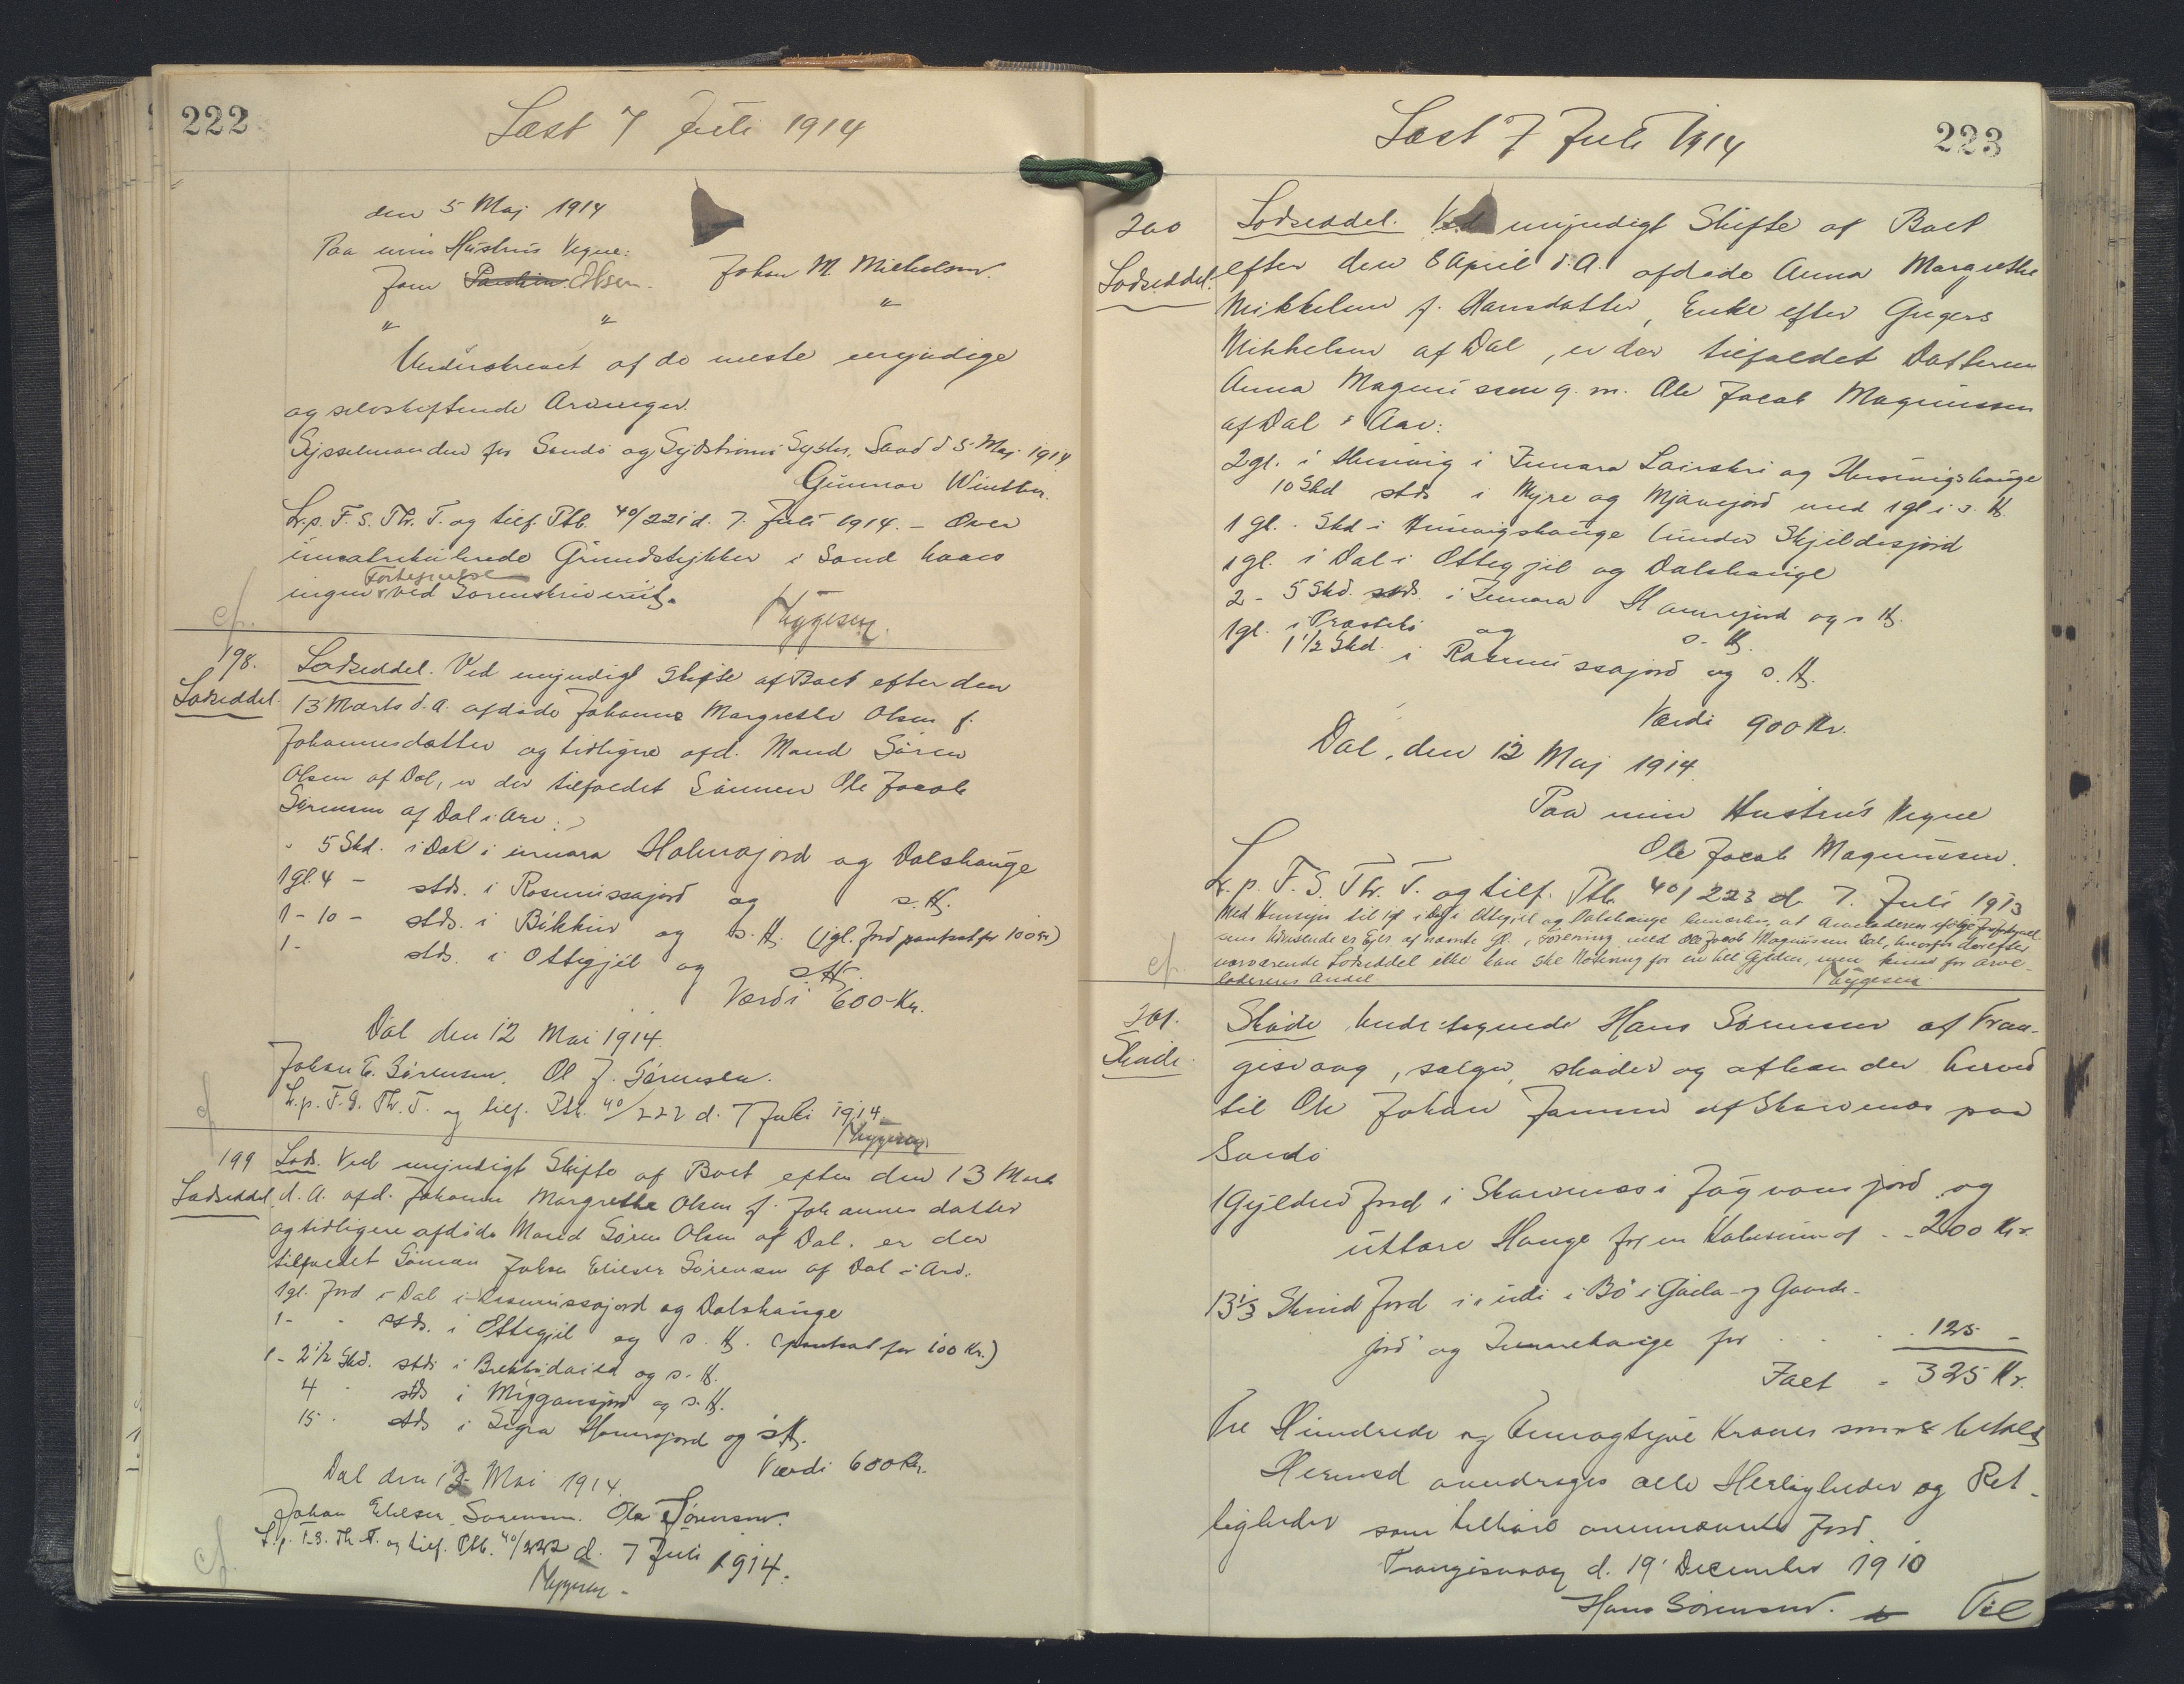 222
Læst 7 Juli 1914
den 5 Maj 1914
Paa min Hustrus Vegne:
Jom Paulin. Olsen. Johan M Mickelsen.
" " "
Underskrevet af de meste myndige
og selvskiftende Arvinger.
Sysselmanden for Sandø og Syd Strømø Sysler, Sand d 5 Maj 1914
Gunnar Winther.
L. p. F. S. Th. T. og tilf. Ptb. 40/221 d. 7. Juli 1914. - Over
umatrikulerede Grundstykker i Sand haves
ingen Fortegnelse ved Sorenskriveriet.
Tryggesen.
cf.
198. Lodseddel. Ved myndigt Skifte af Boet efter den
Lodseddel. 13 Marts d. A. afdøde Johanne Margrethe Olsen f.
Johannesdatter og tidligere afd. Mand Sören
Olsen af Dal, er der tilfaldet Sönnen Ole Jacob
Sörensen af Dal i Arv:
" 5 Skd. i Dal i innara Halmajord og Dalshauge
1 gl. 4 - stds. i Rasmussajord og s. H.
1 - 10 - stds. i Bikkin og s. H. (1 gl. Jord pantsat for 100 Kr)
1 - stds. i Ottegjil og s. H.
Værdi 600 Kr.
Dal den 12 Mai 1914.
Johan E. Sörensen. Ol J. Sörensen.
L. p. F. S. Th. T. og tilf. Ptb. 40/222 d. 7 Juli 1914.
Tryggesen.
cf
199 Lods. Ved myndigt Skifte af Boet efter den 13 Marts
Lodseddel d. A. afd. Johanne Margrethe Olsen f. Johannesdatter
og tidligere afdöde Mand Sören Olsen af Dal. er der
tilfaldet Sönnen Johan Elieser Sörensen af Dal i Arv.
1 gl. Jord i Dal i Rasmussajord og Dalshauge
1 - - stds. i Ottegjil og s. H. (pantsat for 100 Kr.)
1 - 2 1/2 Skd. stds i og s. H.
4 - stds i Miggansjord og s. H.
15 - stds i Hamrajord og s. H.
Værdi 600 Kr.
Dal den 12 Mai 1914.
Johan Elieser Sorensen. Ole J Sörensen.
L. p. F. S. Th. T. og tilf. Ptb. 40/222 d. 7 Juli 1914.
Tryggesen.
cf.
Læst 7 Juli 1914
223
200 Lodseddel. Ved myndigt Skifte af Boet
Lodseddel. efter den 8 April d. A. afdøde Anna Margrethe
Mikkelsen f. Hansdatter, Enke efter
Mikkelsen af Dal, er der tilfaldet Datteren
Anna Magnussen g. m. Ole Jacob Magnussen
af Dal i Arv:
2 gl. i Husavig i Innara og Husavigshauge
10 Skd stds i Myre og Mjávajord med 1 gl i s. H.
1 gl. - Skd i Husavigshauge (under Skjildesjord
1 gl. i Dal i Ottegjil og Dalshauge
2 - 5 Skd. stds. i Innara Hamrajord og s H.
1 gl. i og s. H.
1 1/2 Skd. i Rasmussajord og s. H.
Værdi 900 Kr.
Dal, den 12 Maj 1914.
Paa min Hustrus Vegne
Ole Jacob Magnussen.
L. p. F. S. Th. T. og tilf. Ptb. 40/223 d. 7. Juli 1913
Med Hensyn til 1 gl i Dal i Ottegjil og Dalshauge bemærkes, at Arveladeren ifølge
som er Ejer af nævnte gl. i Forening med Ole Jacob Magnussen Dal, hvorfor derefter
nærværende Lodseddel ikke kan ske Notering for en hel Gylden, men kun for Arve-
laderens Andel
Tryggesen
cf
201. Skøde Undertegnede Hans Sörensen af Tran-
Skøde. gisvaag, sælger, skøder og afhænder herved
til Ole Johan Jensen af Skarvenæs paa
Sandö
1 Gylden Jord i Skarvenæs i Jögvansjord og
uttare Hauge for en Købesum af - - 200 Kr.
13 1/3 Skind Jord i Bø i og Gaards-
jord og Innarehauge for . . . . 125 -
Ialt - 325 Kr.
Tre Hundrede og Femogtyve Kroner som er betalt
Hermed overdrages alle Herligheder og Ret-
tigheder som tilhøre ovennævnte Jord
Trangisvaag d. 19 December 1910
Hans Sörensen. Til